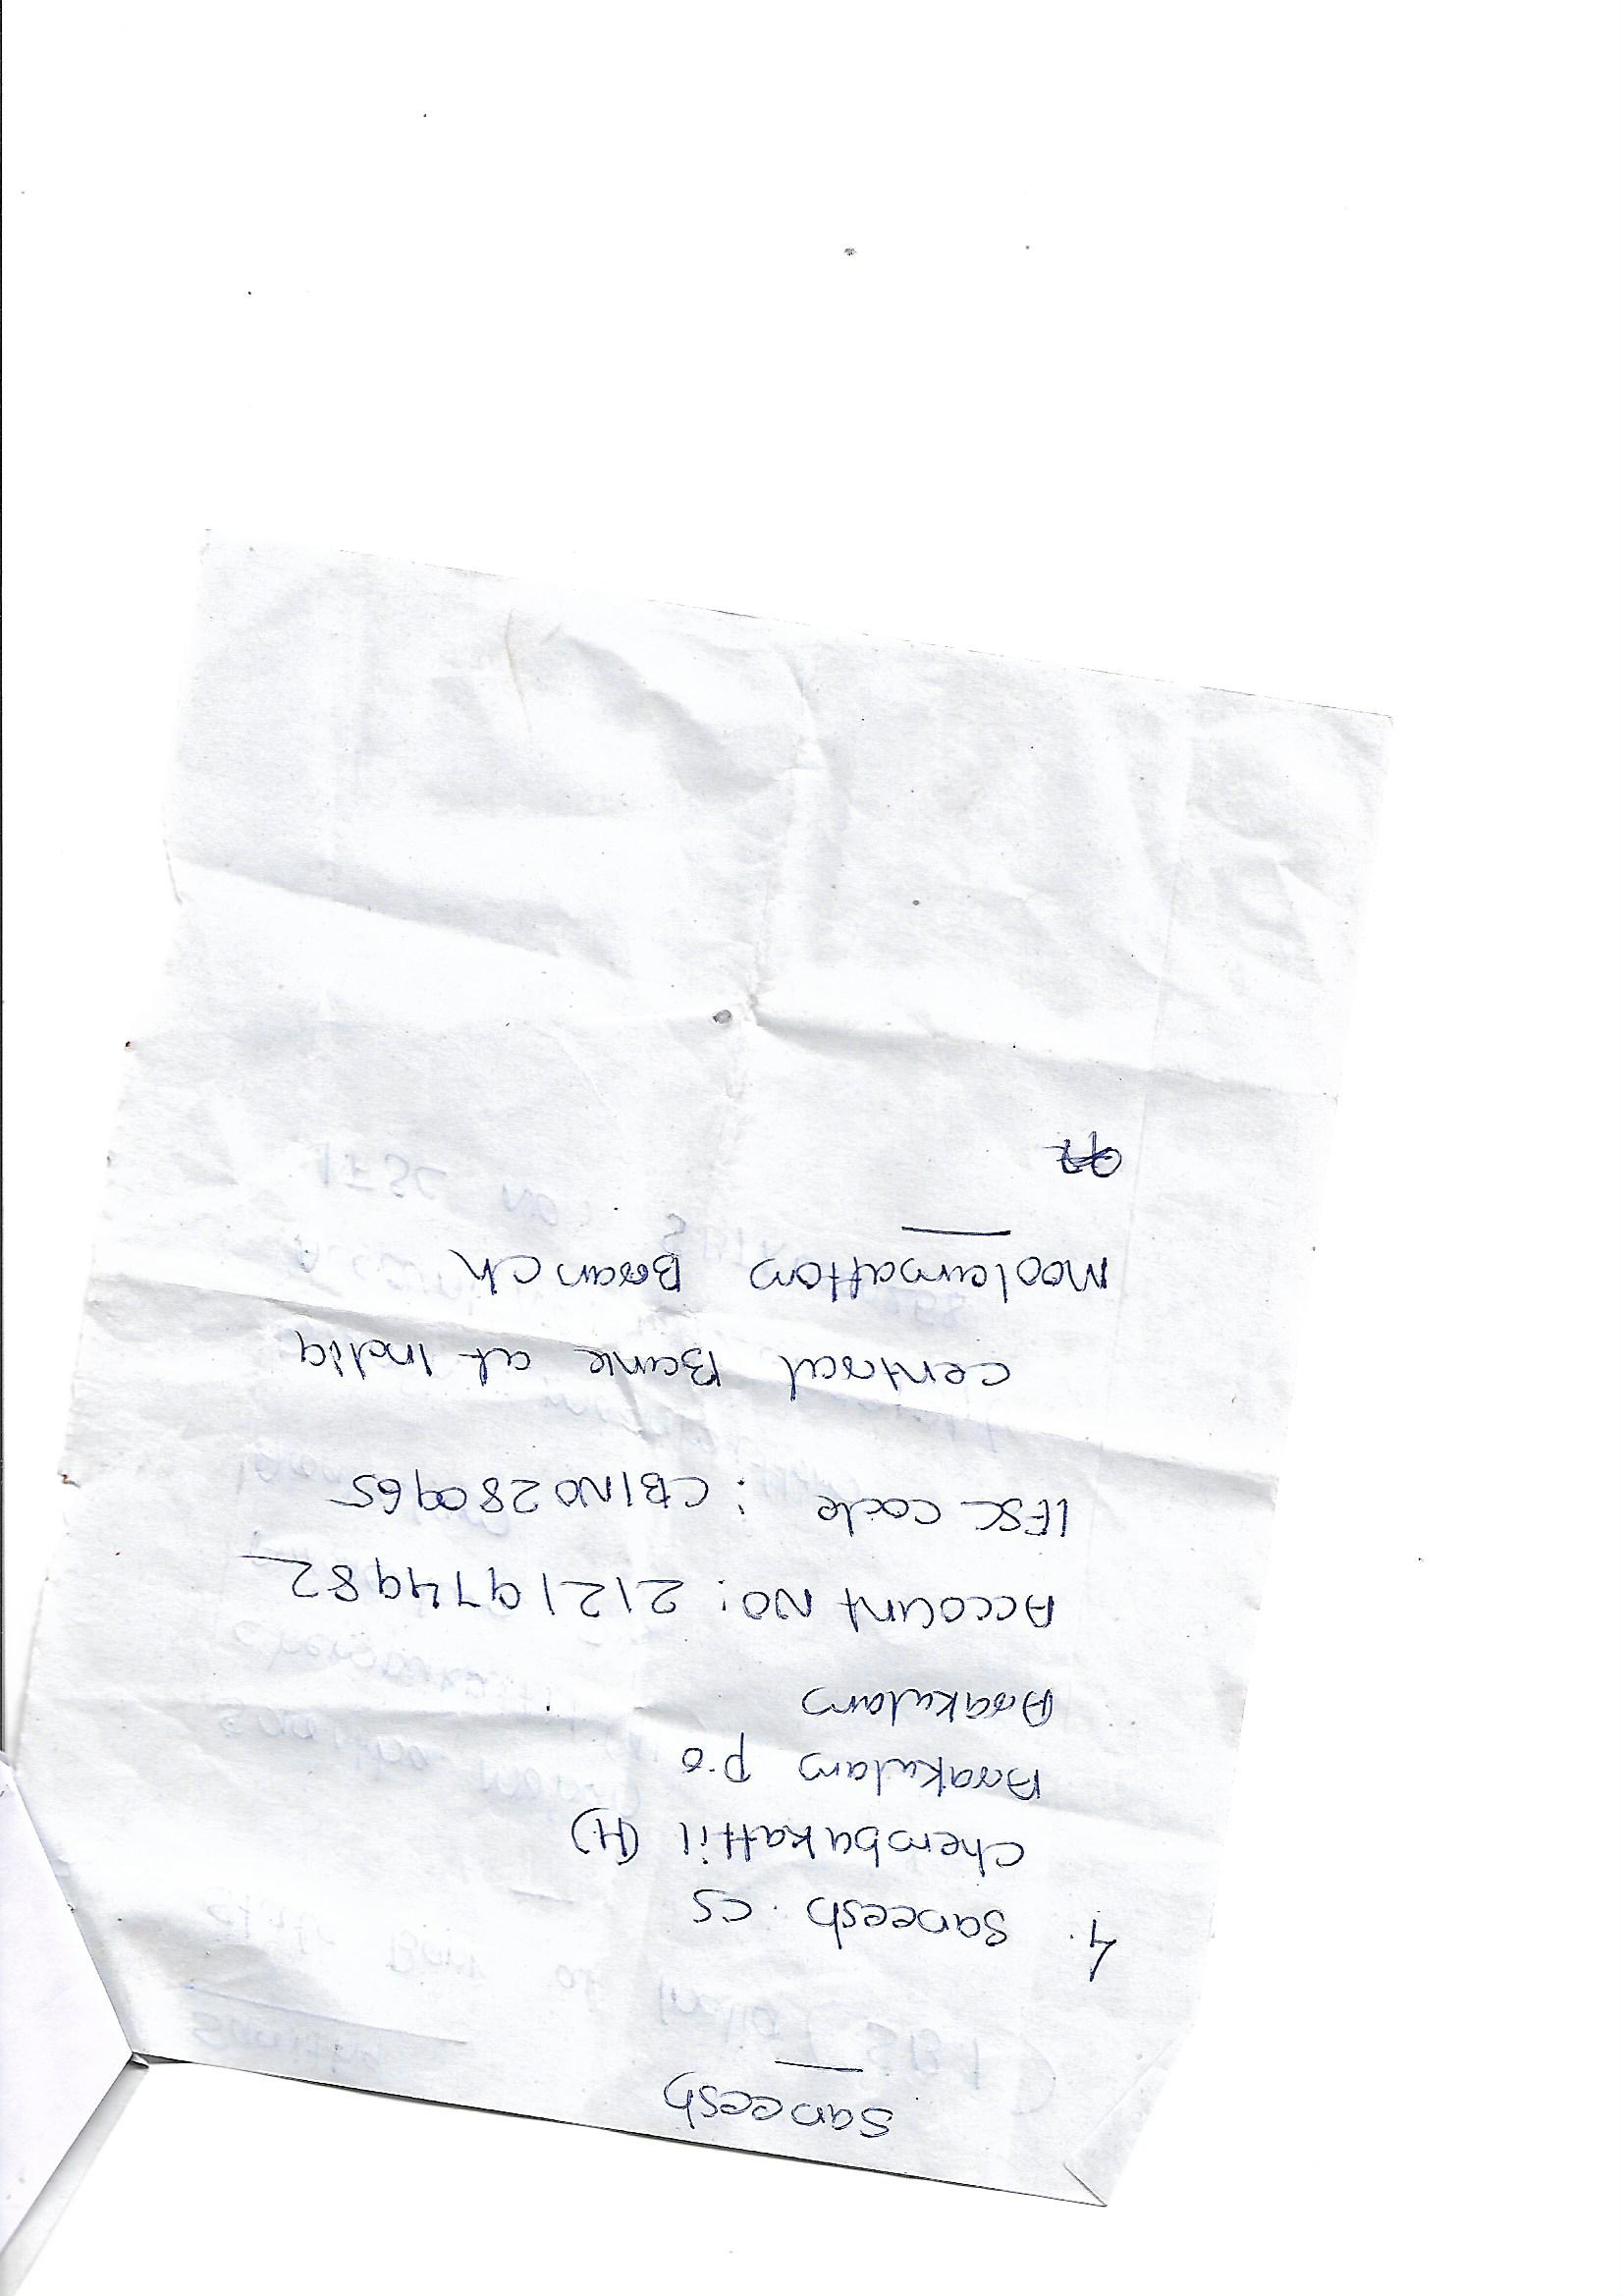 Saneesh
4. Saneesh. CS
Chembukattil (H)
Arakulam P.O
Arakulam
Account NO: 2121974982
IFSC code : CBIN0280965
Central Bank of India
Moolamattom Branch